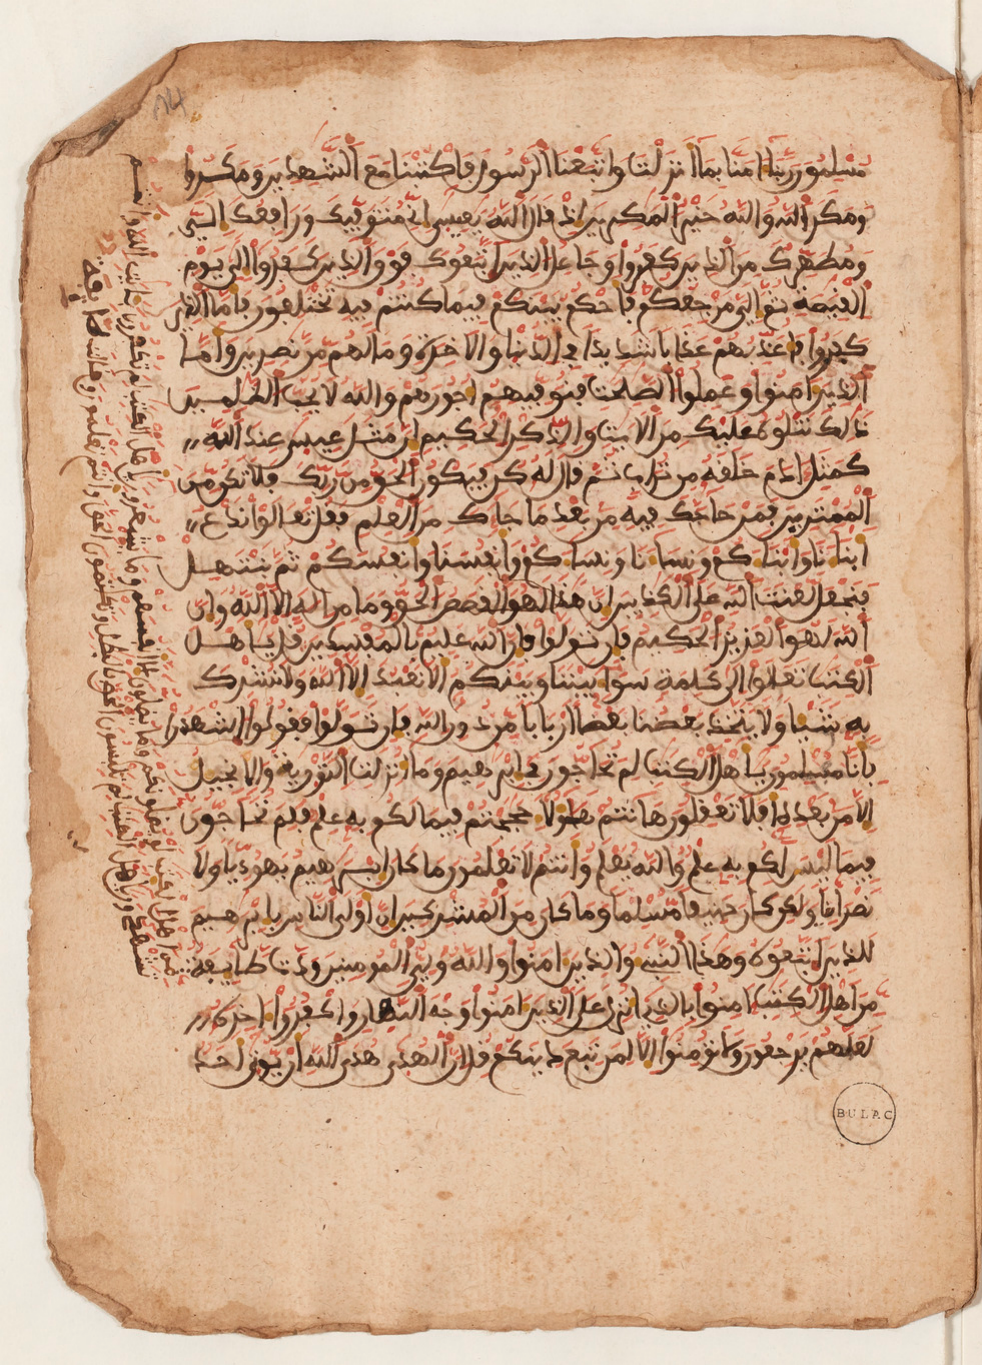 14
مسلمون ربنا امنا بما انزلت واتبعنا الرسول فاكتبنا مع الشهدين ومكروا
ومكر الله والله خير المكرين اذ قال الله يعيسى اني متوفيك ورافعك الي
ومطهرك من الذين كفروا وجاعل الذين اتبعوك فوق الذين كفروا الى يوم
القيمة ثم الي مرجعكم فاحكم بينكم فيما كنتم فيه تختلفون فاما الذين
كفروا فاعذبهم عذابا شديدا في الدنيا والاخرة وما لهم من نصرين واما
الذين امنوا وعملوا الصلحت فنوفيهم اجورهم والله لا يحب الظلمين
ذلك نتلوه عليك من الايت والذكر الحكيم ان مثل عيسى عند الله
كمثل ادم خلقه من تراب ثم قال له كن فيكون الحق من ربك فلا تكن من
الممترين فمن حاجك فيه من بعد ما جاك من العلم فقل تعالوا ندع
ابنانا وابناكم ونسانا ونساكم وانفسنا وانفسكم ثم نبتهل
فنجعل لعنت الله على الكذبين ان هذا لهو القصص الحق وما من اله الا الله وان
الله لهو العزيز الحكيم فان تولوا فان الله عليم بالمفسدين قل ياهل
الكتب تعالوا الى كلمة سوا بيننا وبينكم الا نعبد الا الله ولا نشرك
به شيا ولا يتخذ بعضنا بعضا اربابا من دون الله فان تولوا فقولوا اشهدوا
بانا مسلمون ياهل الكتب لم تحاجون في ابرهيم وما انزلت التورية والانجيل
الا من بعده افلا تعقلون هانتم هولا حججتم فيما لكم به علم فلم تحاجون
فيما ليس لكم به علم والله يعلم وانتم لا تعلمون ما كان ابرهيم يهوديا ولا
نصرانيا ولكن كان حنيفا مسلما وما كان من المشركين ان اولى الناس بابرهيم
للذين اتبعوه وهذا النبي والذين امنوا والله ولي المومنين ودت طايفة
من اهل الكتب امنوا بالذي انزل على الذين امنوا وجه النهار واكفروا اخره
لعلهم يرجعون ولا تومنوا الا لمن تبع دينكم قل ان الهدى هدى الله ان يوتى احد
من اهل الكتب لو يضلونكم وما يضلون الا انفسهم وما يشعرون ياهل الكتب لم تكفرون بايت الله وانتم
تشهدون ياهل الكتب لم تلبسون الحق بالبطل وتكتمون الحق وانتم تعلمون وقالت طايفة
BULAC